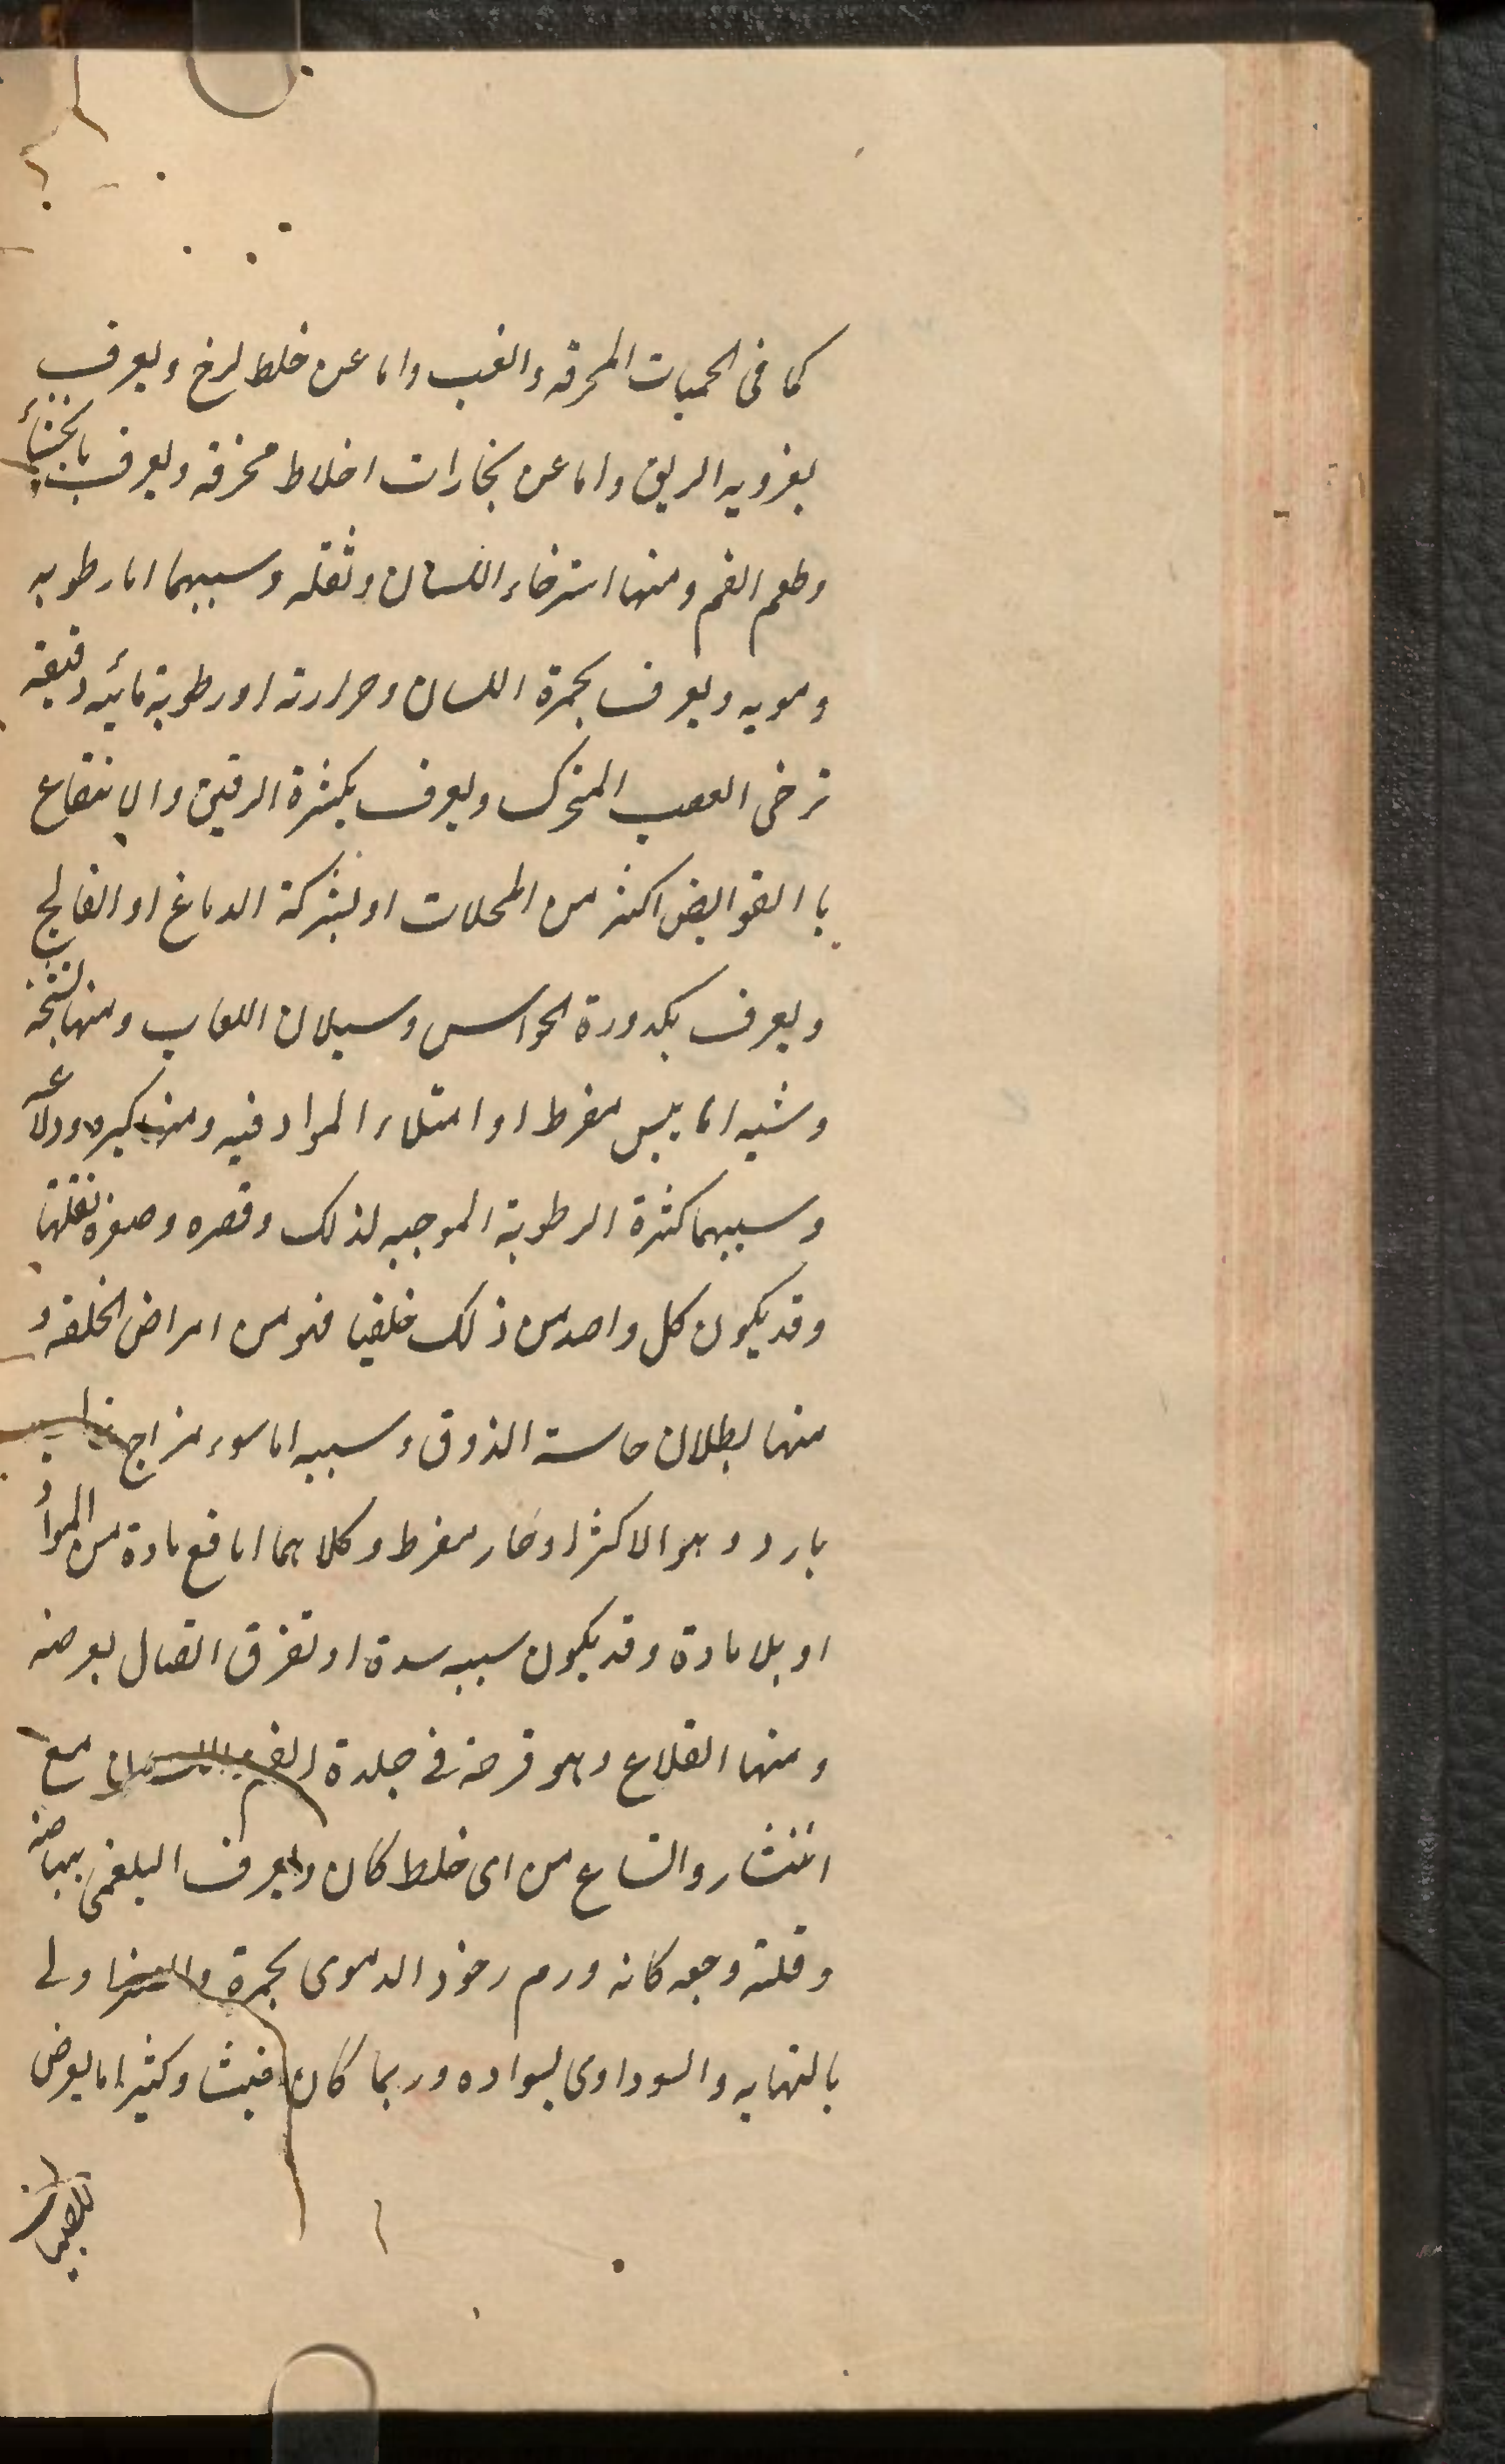 كما فى الحميات المحرقه والغب واما عن خلط لزج ويعرف
بغرويه الريق واما عن بخارات اخلاط محرقه ويعرف بالجشأ
وطعم الفم ومنها استرخاء اللسان وثقله وسببهما اما رطوبه
دمويه ويعرف بحمرة اللسان وحرارته او رطوبة مائيه رقيقه
ترخى العصب المحرك ويعرف بكثرة الريق والانتفاع
با القوابض اكثر من المحللات او بشركة الدماغ او الفالج
ويعرف بكدورة الحواس وسيلان اللعاب ومنها تشنجه
وسببه اما يبس مفرط او امتلاء المواد فيه ومنها كبره ودلاعه
وسببهما كثرة الرطوبة الموجبه لذلك وقصره وصغره لقلتها
وقد يكون كل واحد من ذلك خلقيا فهو من امراض الخلقه و
منها بطلان حاسة الذوق وسببه اما سوء مزاج
بارد وهو الاكثر او حار مفرط وكلاهما اما مع مادة من المواد
او بلا مادة وقد يكون سببه سدة او تفرق اتصال يعرضه
ومنها القلاع وهو قرحة فى جلدة الفم واللسان مع
انتشار واتساع من اى خلط كان ويعرف البلغمى ببياضه
وقلة وجعه كانه ورم رخو والدموى بحمرة والصفراوى
بالتهابه والسوداوى بسواده وربما كان خبيثا وكثيرا ما يعرض
للصبيان